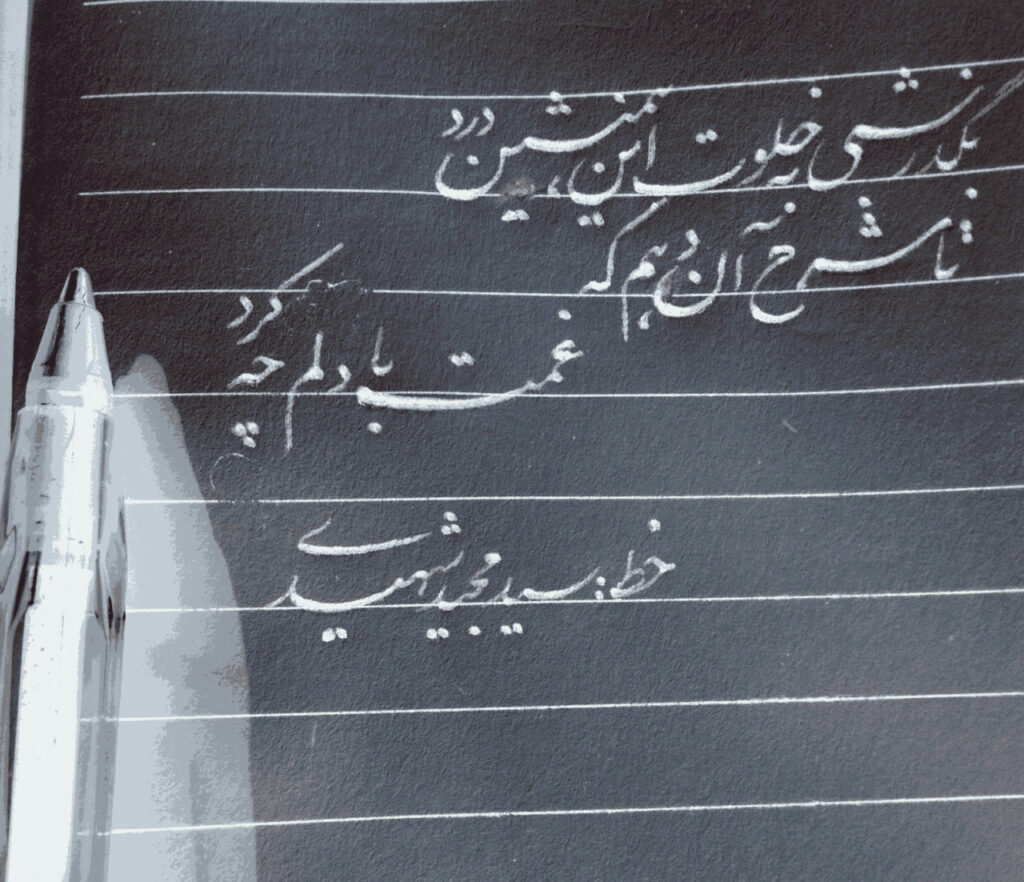 بگذر شبی به خلوت این همنشین درد
تا شرح آن دهم که
غمت با دلم چه کرد
خط: سید مجید شهیدی